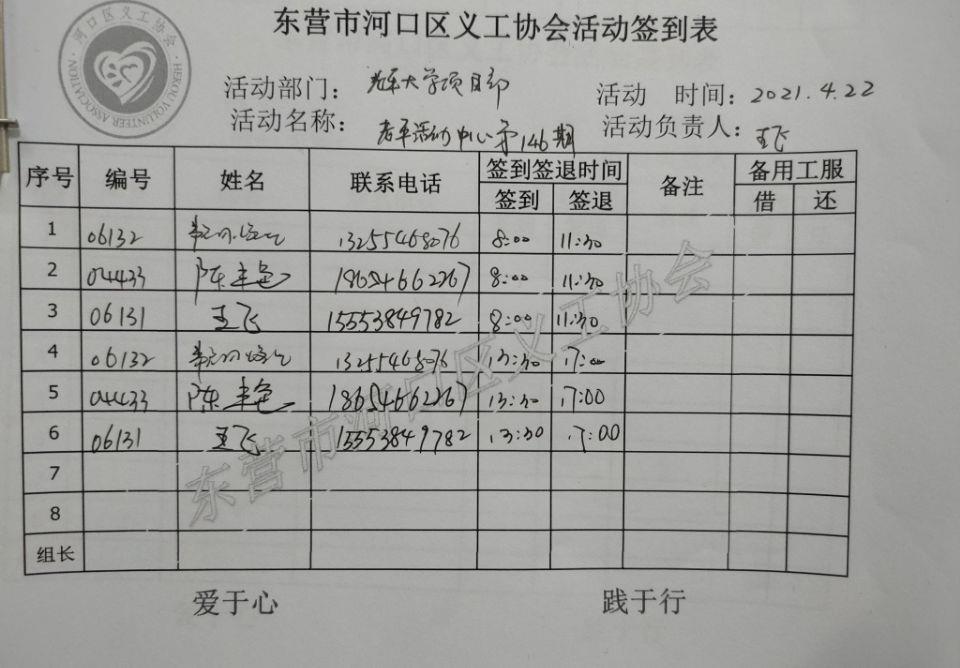 东营市河口区义工协会活动签到表
河口区义工协会
HEKOU VOLUNTEER ASSOCIATION
活动部门： 老年大学项目部 活动 时间：2021.4.22
活动名称： 老年活动中心第146期 活动负责人：王飞
序号 编号 姓名 联系电话 签到签退时间 备注 备用工服
签到 签退 借 还
1 06132 13255468076 8:00 11:30
2 04433 陈丰色 18654662267 8:00 11:30
3 06131 王飞 15553849782 8:00 11:30
4 06132 13255468076 13:30 17:00
5 04433 陈丰色 18654662267 13:30 17:00
6 06131 王飞 15553849782 13:30 17:00
7
8
组长
东营市河口区义工协会
爱于心 践于行